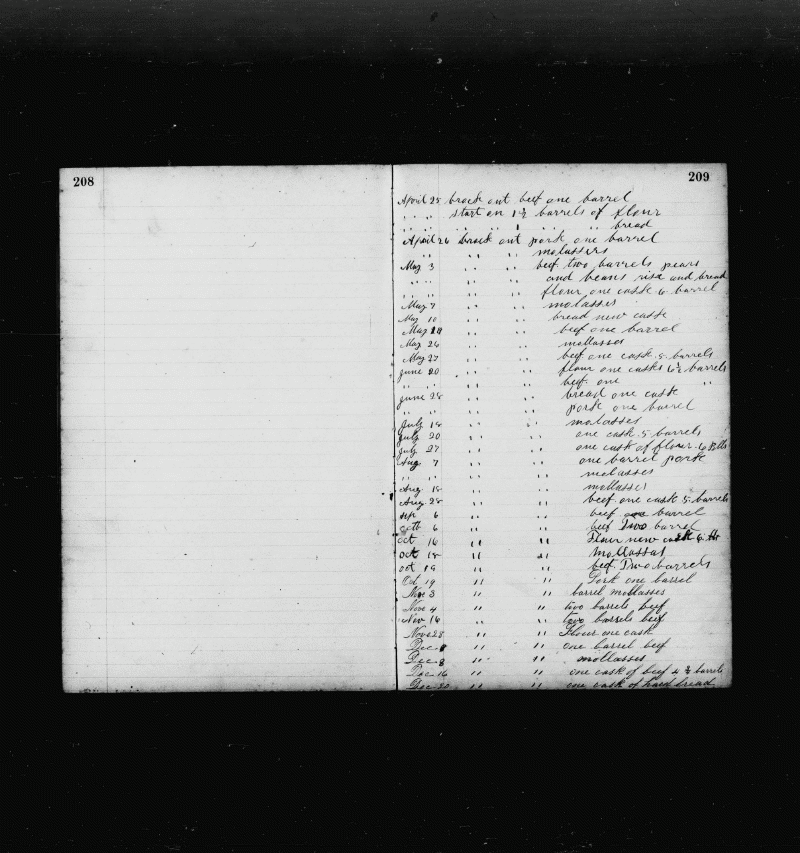 208
209
April 25 brock out beef one barrel
" " start on 1½ barrels of flour
" " " " 1 " " bread
April 26 brock out pork one barrel
" " molassers
May 3 " " beef two barrels pears
" " " " and beans rise and bread
" " " " flour one cask 6 barrel
May 7 " " molasses
May 10 " " bread new cask
May " " beef one barrel
May 26 " " mollasses
May 27 " " beef one cask 5 barrels
June 20 " " flour one casks 6½ barrels
" " " " beef one "
June 28 " " bread one cask
" " " " pork one barrel
July 18 " " molasses
July 20 " " one cask 5 barrels
July 27 " " one cask of flour 6 Bbls
Aug 7 " " one barrel pork
" " " " molasses
Aug 18 " " mollasses
Aug 28 " " beef one cask 5 barrels
sep 6 " " beef one barrel
octb 6 " " beef Two barrel
oct 16 " " Flour new cask 6
oct 18 " " Mollasses
oct 19 " " beef Two barrels
Oct 19 " " Pork one barrel
Nov 3 " " barrel mollasses
Nove 4 " " two barrels beef
Nov 16 " " two barrels beef
Nove 28 " " Flour one cask
Dec 8 " " one barrel beef
Dec 8 " " mollasses
Dec 16 " " one cask of beef 4 ½ barrels
Dec 20 " " one cask of hard bread